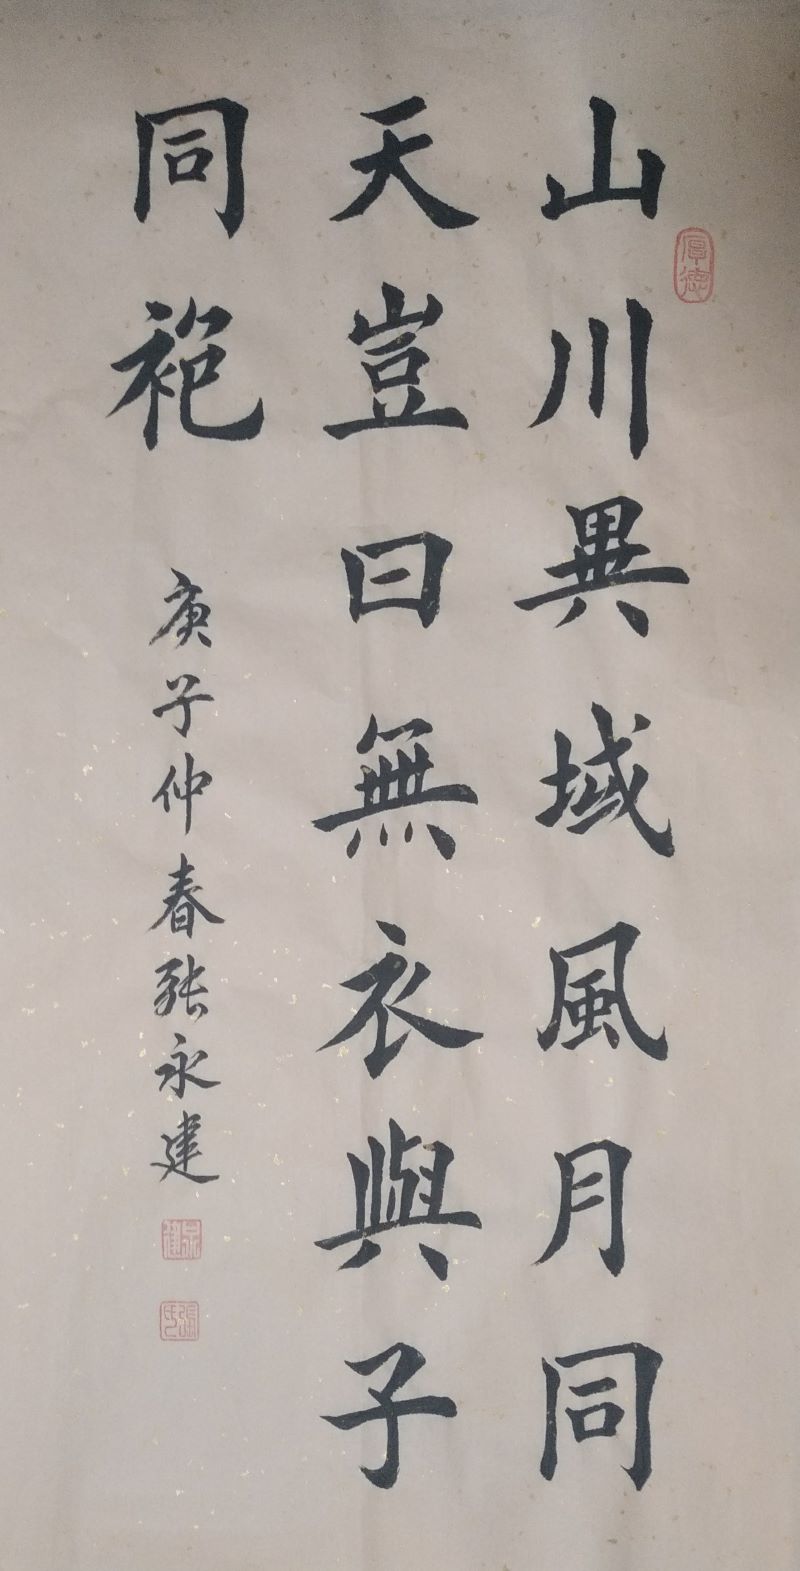 山川異域風月同
天豈曰無衣與子
同袍
庚子仲春張永建
厚德